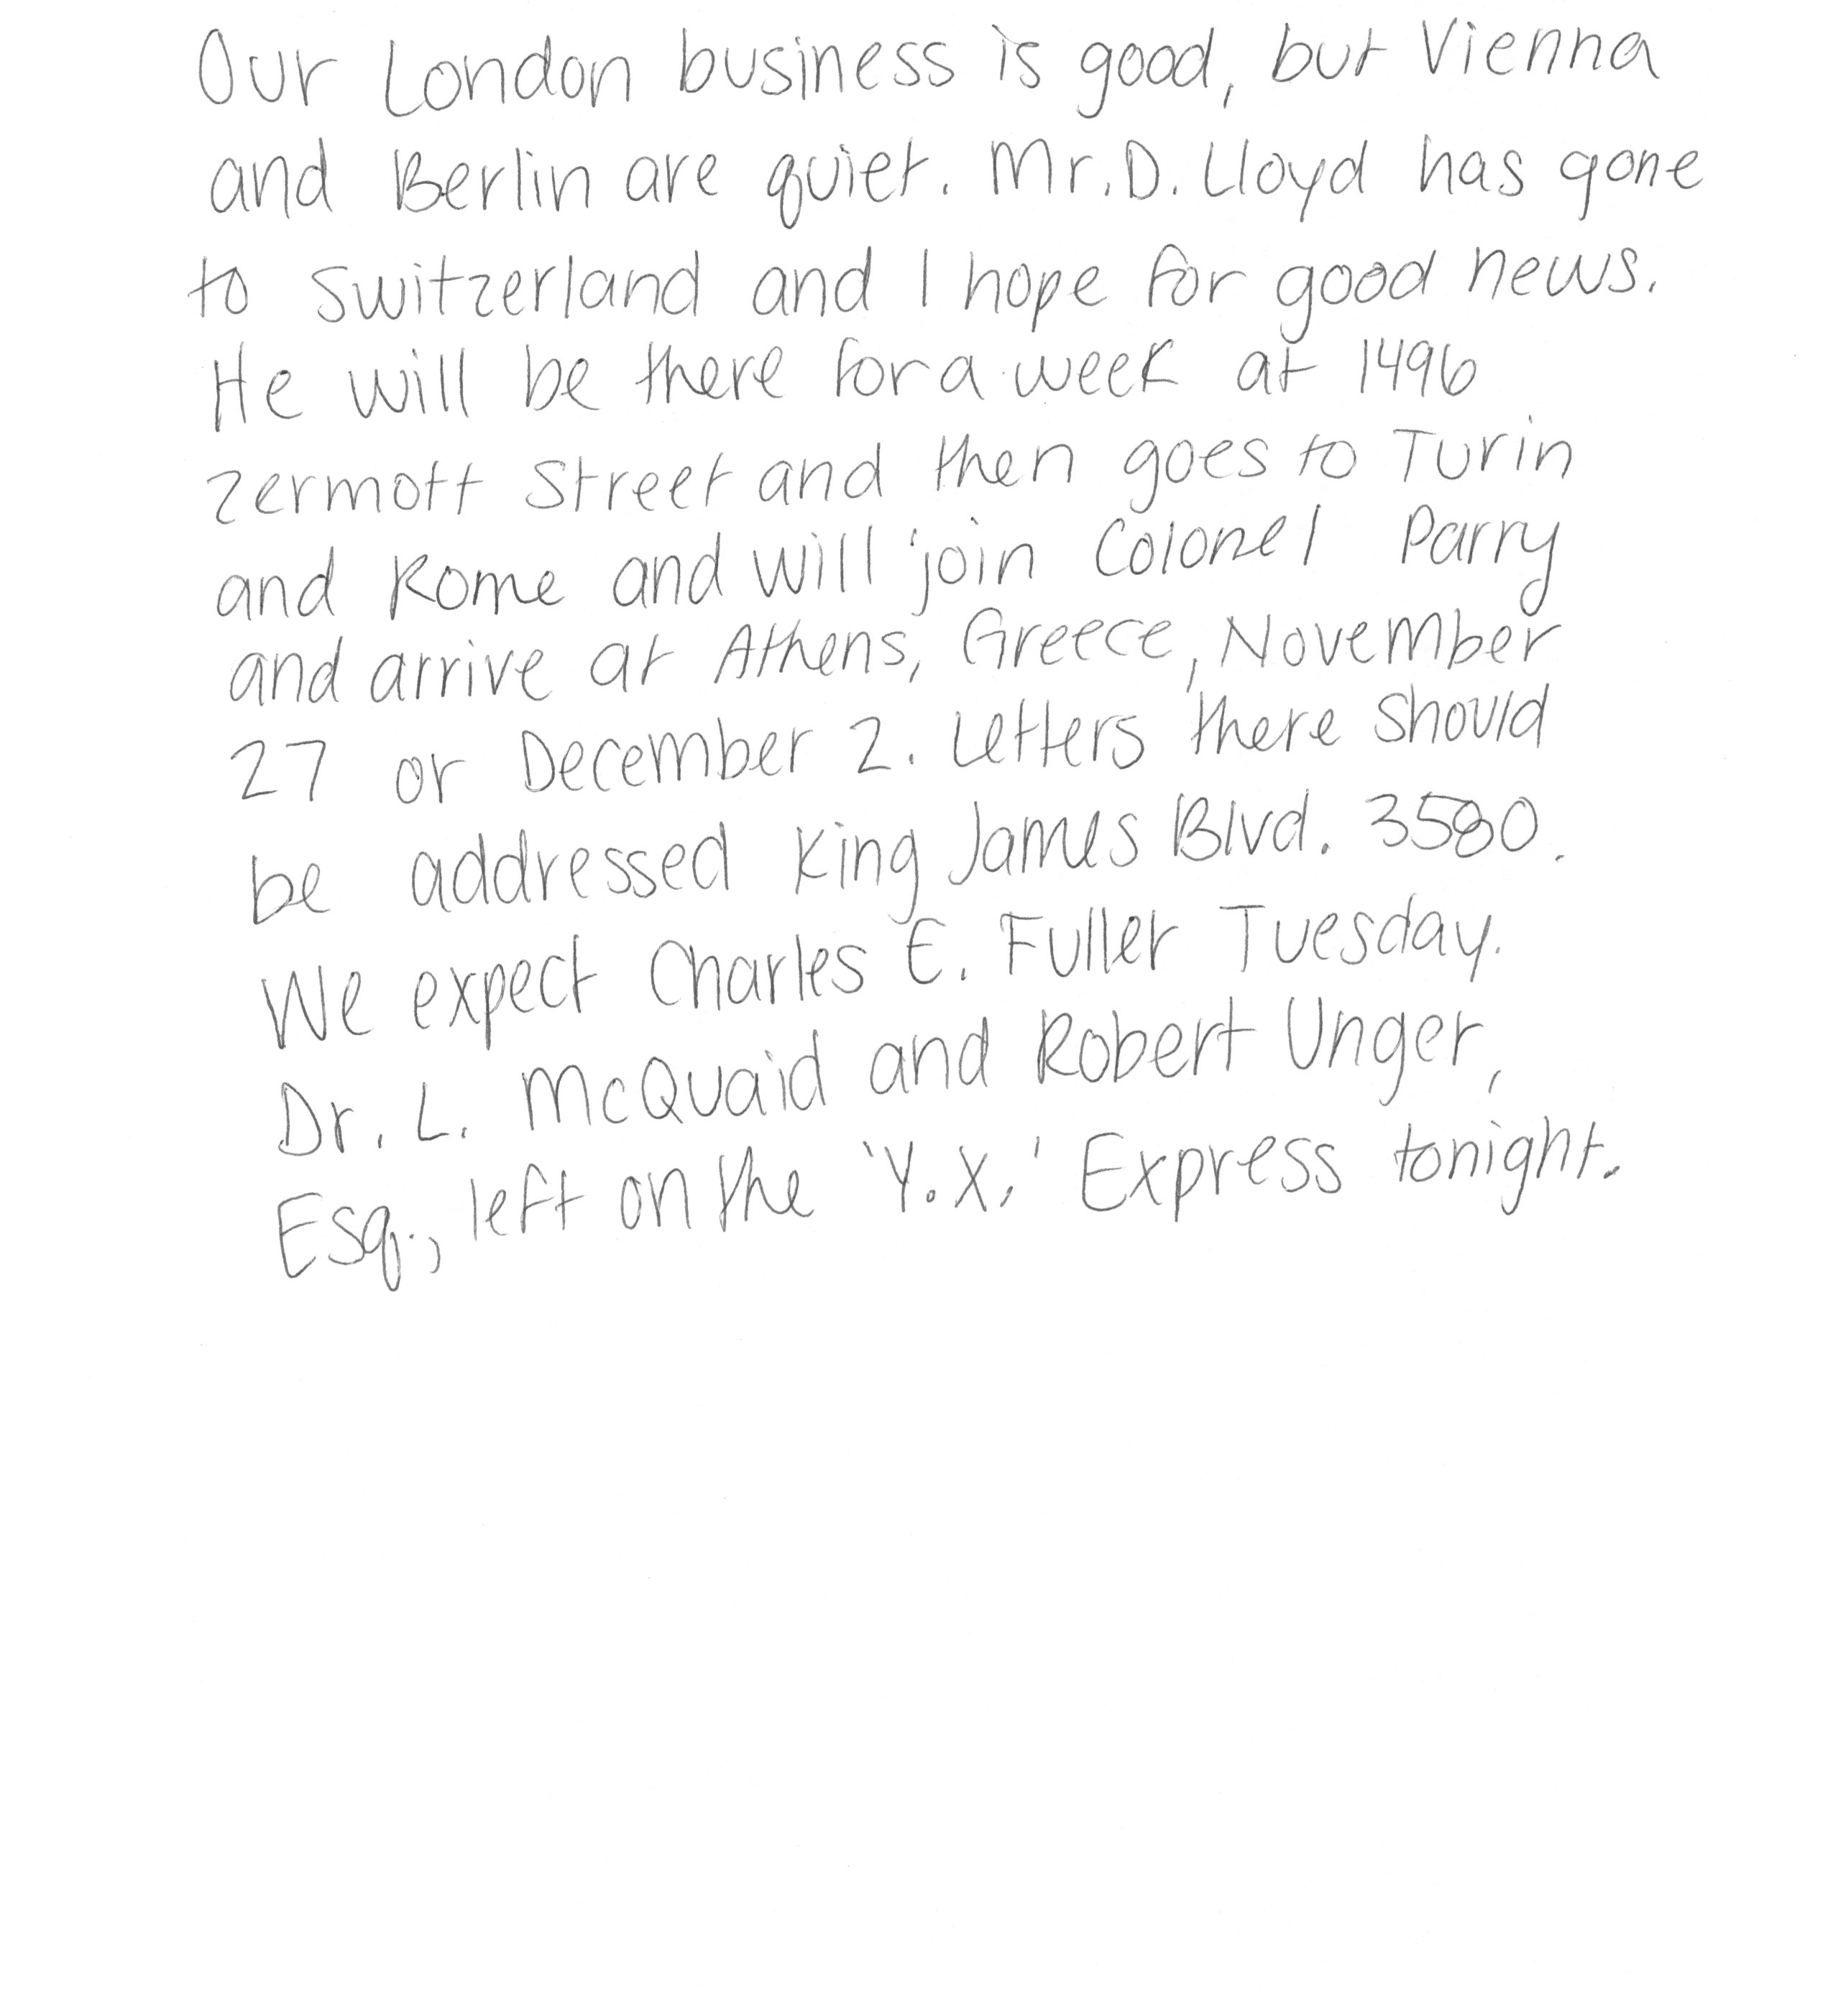 Our London business is good, but Vienna
and Berlin are quiet. Mr. D. Lloyd has gone
to Switzerland and I hope for good news.
He will be there for a week at 1496
Zermott Street and then goes to Turin
and Rome and will join Colonel Parry
and arrive at Athens, Greece, November
27 or December 2. Letters there should
be addressed King James Blvd. 3580.
We expect Charles E. Fuller Tuesday.
Dr. L. McQuaid and Robert Unger,
Esq., left on the 'Y.X.' Express tonight.